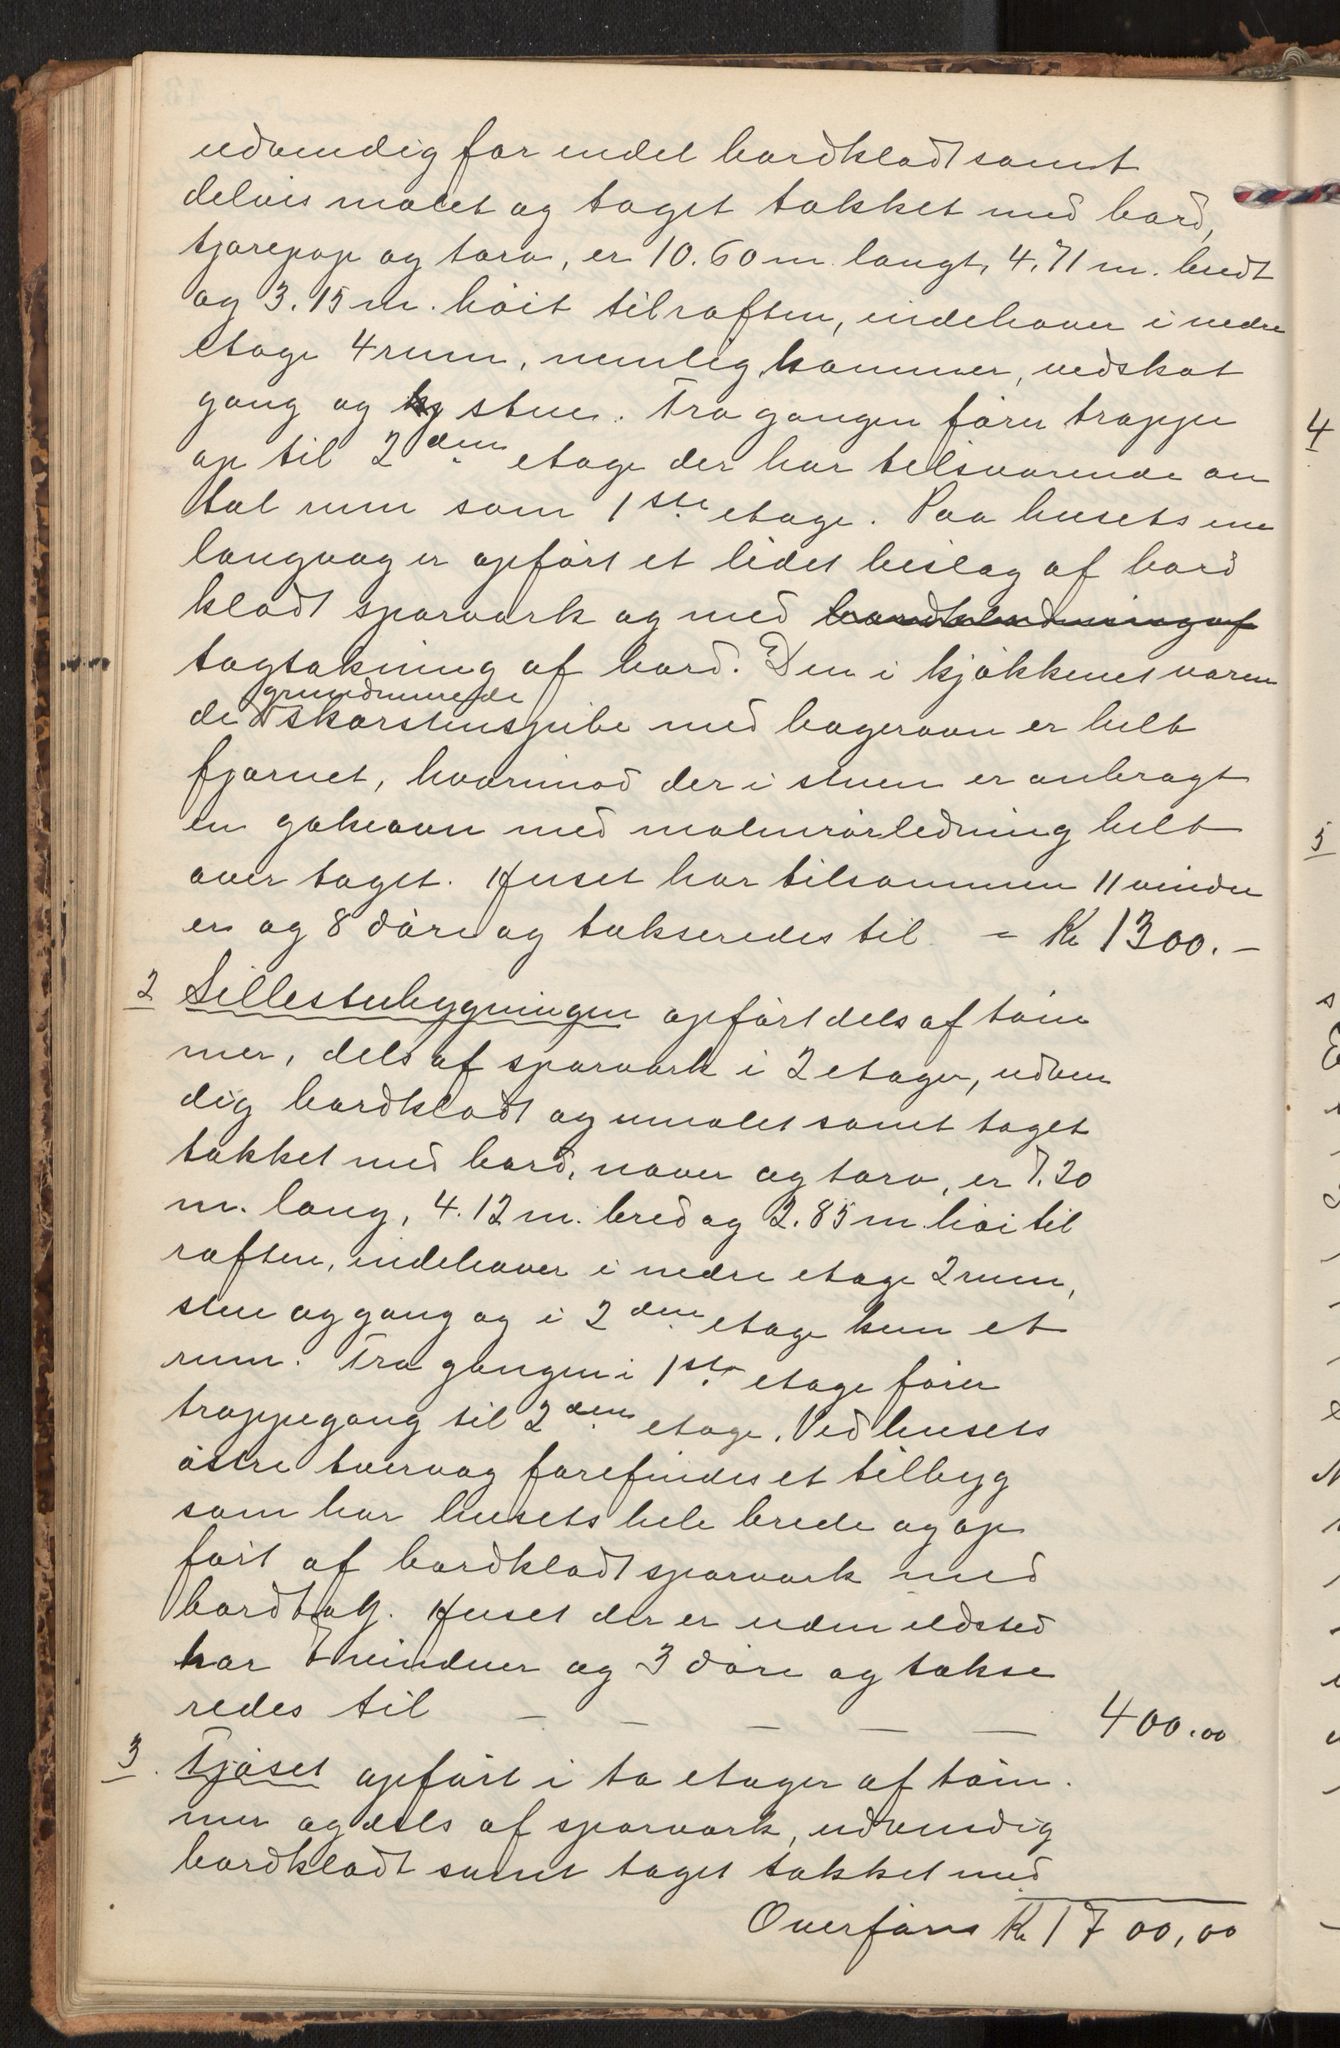 udvendig for endel bordklædt samt
delvis malet og taget tækket med bord,
tjærepap og torv, er 10.60 m. langt, 4.71 m. bredt
og 3.15 m. høit til raften, indehaver i nedre
etage 4 rum, nemlig kammer, vedskot
gang og stue. Fra gangen fører trappe
op til 2den etage der har tilsvarende an
tal rum som 1ste etage. Paa husets ene
langvæg er opført et lidet bislag af bord
klædt sparværk og med bordklædning af
tagtækning af bord. Den i kjøkkenet væren
de grundmurede skorstenspibe med bagerovn er helt
fjærnet, hvorimod der i stuen er anbragt
en gokeovn med malmrørledning helt
over taget. Huset har tilsammen 11 vindu
er og 8 døre og takseredes til - Kr 1300.-
2 Lillestubygningen opført dels af tøm
mer, dels af sparværk i 2 etager, udven
dig bordklædt og umalet samt taget
tækket med bord, næver og torv, er 7.20
m. lang, 4.12 m. bred og 2.85 m. høi til
raften, indehaver i nedre etage 2 rum,
stue og gang og i 2den etage kun et
rum. Fra gangen i 1ste etage fører
trappegang til 2den etage. Ved husets
østre tvervæg forefindes et tilbyg
som har husets hele brede og op
ført af bordklædt sparværk med
bordtag. Huset der er uden ildsted
har 7 vinduer og 3 døre og takse
redes til - - - - - 400.00
3. Fjøset opført i to etager af tøm
mer og dels af sparværk, udvendig
bordklædt samt taget tækket med
Overføres Kr 1700,00